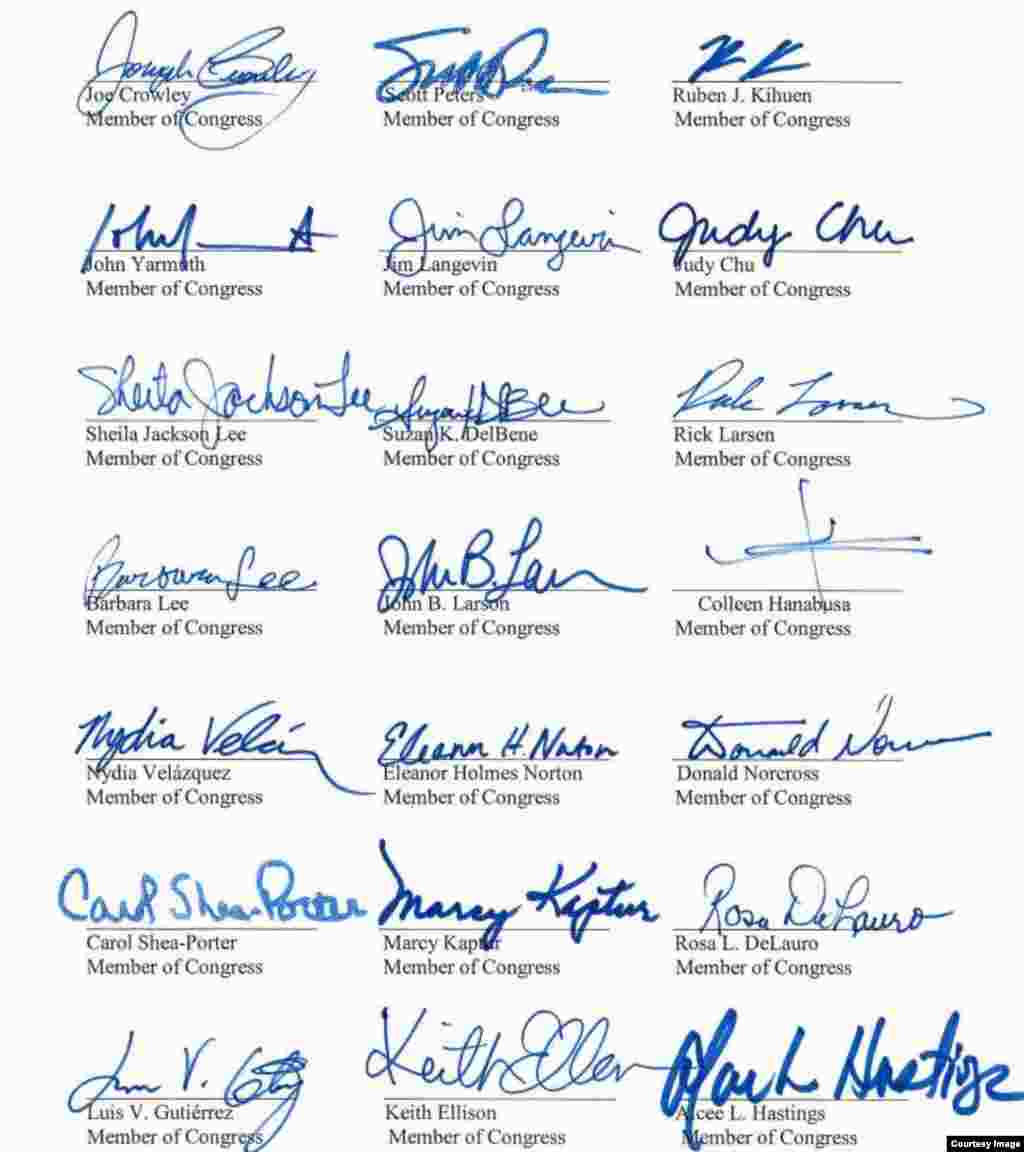 Joseph Crowley
Joe Crowley
Member of Congress
Scott Peters
Member of Congress
Ruben J. Kihuen
Member of Congress
John Yarmuth
Member of Congress
Jim Langevin
Jim Langevin
Member of Congress
Judy Chu
Judy Chu
Member of Congress
Sheila Jackson Lee
Sheila Jackson Lee
Member of Congress
Suzan K. DelBene
Member of Congress
Rick Larsen
Member of Congress
Barbara Lee
Barbara Lee
Member of Congress
John B. Larson
John B. Larson
Member of Congress
Colleen Hanabusa
Member of Congress
Nydia Velázquez
Member of Congress
Eleanor H. Norton
Eleanor Holmes Norton
Member of Congress
Donald Norcross
Member of Congress
Carol Shea-Porter
Carol Shea-Porter
Member of Congress
Marcy Kaptur
Marcy Kaptur
Member of Congress
Rosa DeLauro
Rosa L. DeLauro
Member of Congress
Luis V. Gutiérrez
Member of Congress
Keith Ellison
Member of Congress
Alcee L. Hastings
Member of Congress
Courtesy Image